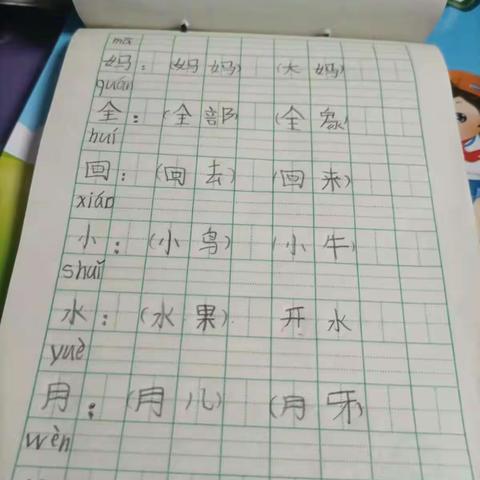 mā
妈：（妈妈）（大妈）
quán
全：（全部）（全家）
huí
回：（回去）（回来）
xiáo
小：（小鸟）（小牛）
shuǐ
水：（水果）开水
yuè
月：（月儿）（月牙）
wèn